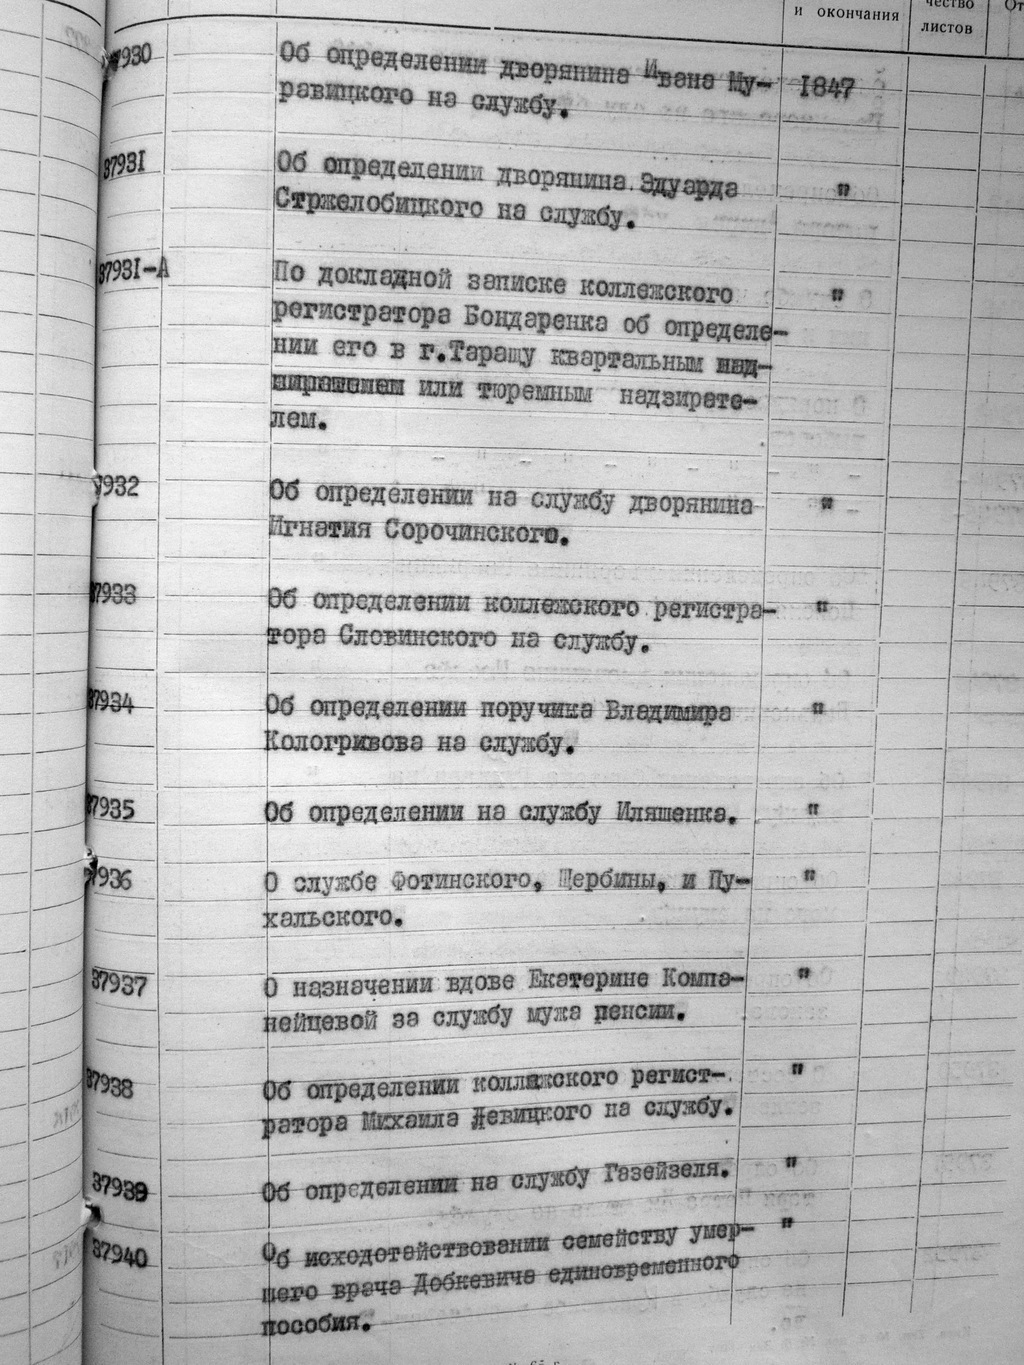 и окончания
чество
листов
От
37930 Об определении дворянина Ивана Му- 1847
равицкого на службу.
37931 Об определении дворянина Эдуарда "
Стржелобицкого на службу.
37931-А По докладной записке коллежского "
регистратора Бондаренка об определе-
нии его в г.Таращу квартальным над-
зирателем или тюремным надзирате-
лем.
7932 Об определении на службу дворянина "
Игнатия Сорочинского.
37933 Об определении коллежского регистра- "
тора Словинского на службу.
37934 Об определении поручика Владимира "
Кологривова на службу.
37935 Об определении на службу Иляшенка. "
7936 О службе Фотинского, Щербины, и Пу- "
хальского.
37937 О назначении вдове Екатерине Компа- "
нейцевой за службу мужа пенсии.
37938 Об определении коллежского регист- "
ратора Михаила Левицкого на службу.
37939 Об определении на службу Газейзеля. "
37940 Об исходотайствовании семейству умер- "
шего врача Добкевича единовременного
пособия.